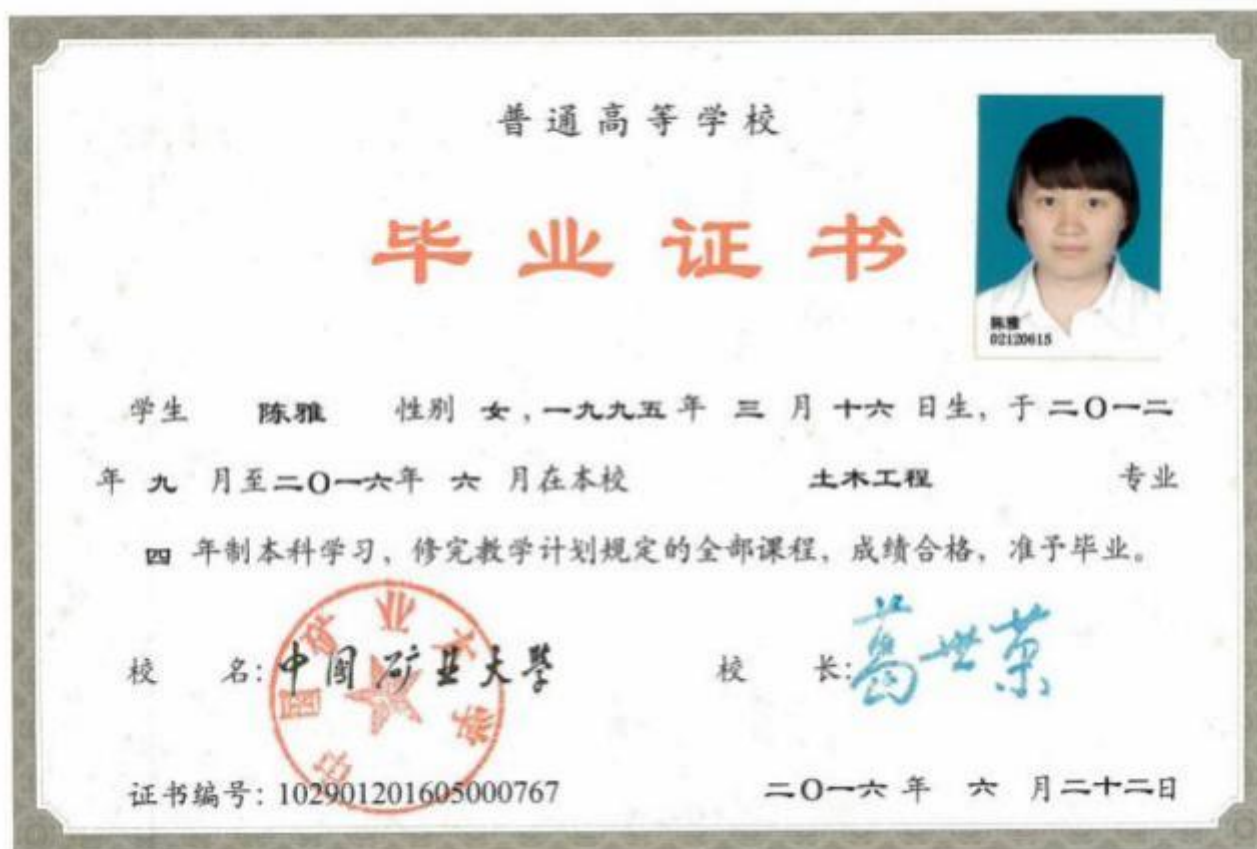 普通高等学校
毕业证书
陈雅
02120615
学生 陈雅 性别 女，一九九五年 三 月 十六 日生，于 二O一二
年 九 月至二O一六年 六 月在本校 土木工程 专业
四 年制本科学习，修完教学计划规定的全部课程，成绩合格，准予毕业。
校 名：中国矿业大学
中国矿业大学
校 长：葛世荣
证书编号：102901201605000767
二O一六 年 六 月二十二日